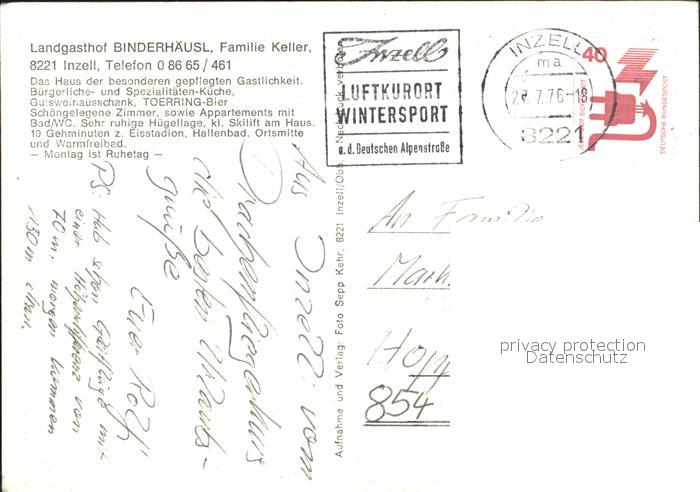 Landgasthof BINDERHÄUSL, Familie Keller,
8221 Inzell, Telefon 0 86 65 / 461
Das Haus der besonderen gepflegten Gastlichkeit.
Bürgerliche- und Spezialitäten-Küche,
Gutsweinausschank, TOERRING-Bier
Schöngelegene Zimmer, sowie Appartements mit
Bad/WC. Sehr ruhige Hügellage, kl. Skilift am Haus.
10 Gehminuten z. Eisstadion, Hallenbad, Ortsmitte
und Warmfreibad.
— Montag ist Ruhetag —
Inzell
LUFTKURORT
WINTERSPORT
a. d. Deutschen Alpenstraße
INZELL
ma
7.76-18
8221
40
JEDERZEIT SICHERHEIT
DEUTSCHE BUNDESPOST
Aufnahme und Verlag: Foto Sepp Kehr, 8221 Inzell/Obb.
Aus Inzell vom
Drachenfliegerkurs
die besten Urlaubs-
grüße
Euer Rolf
PS: Hab schon Gleitflüge mit
einer Höhendifferenz von
70 m. morgen kommen
1130 m dran.
An Familie
Mark
Hopp
854
privacy protection
Datenschutz